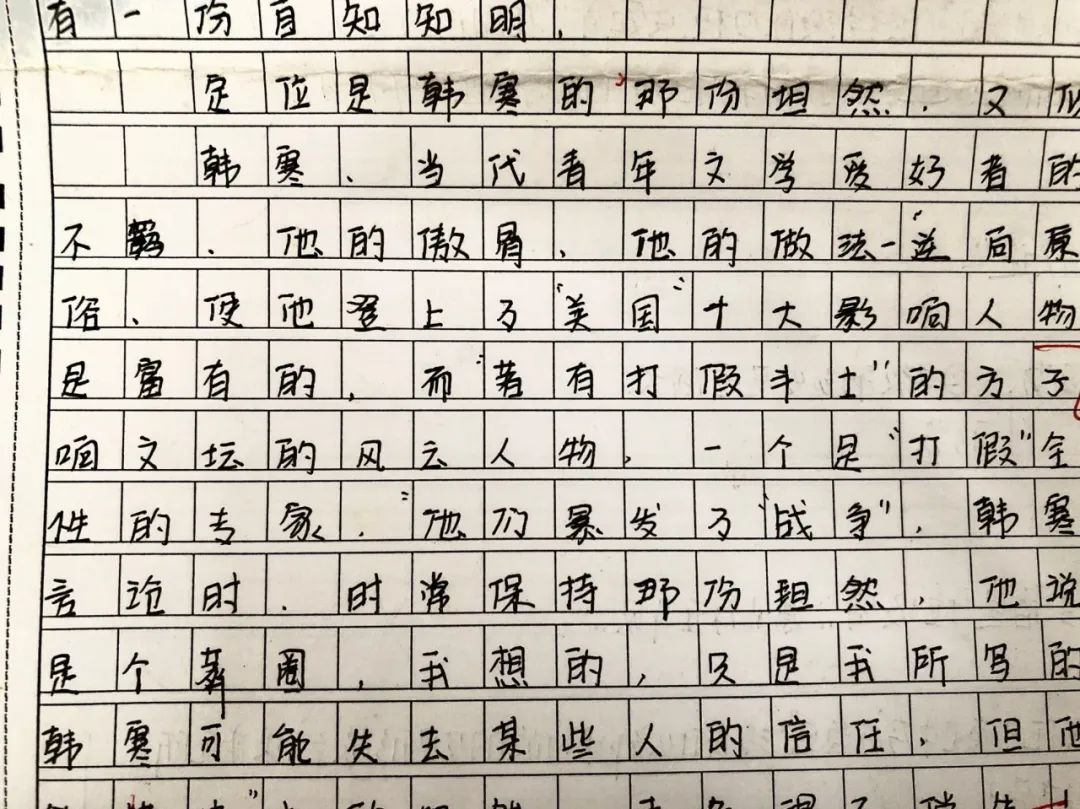 有一份自知知明,
定位是韩寒的那份坦然.又似
韩寒、当代青年文学爱好者的
不羁.他的傲骨、他的做法一逆向原
俗、使他登上了“美国”十大影响人物
是富有的,而“若有打假斗士”的方子
响文坛的风云人物,一个是“打假”全
性的专家.“他们暴发了“战争”,韩寒
言论时.时常保持那份坦然,他说
是个葬圈,我想的,只是我所写的
韩寒可能失去某些人的信任.但他